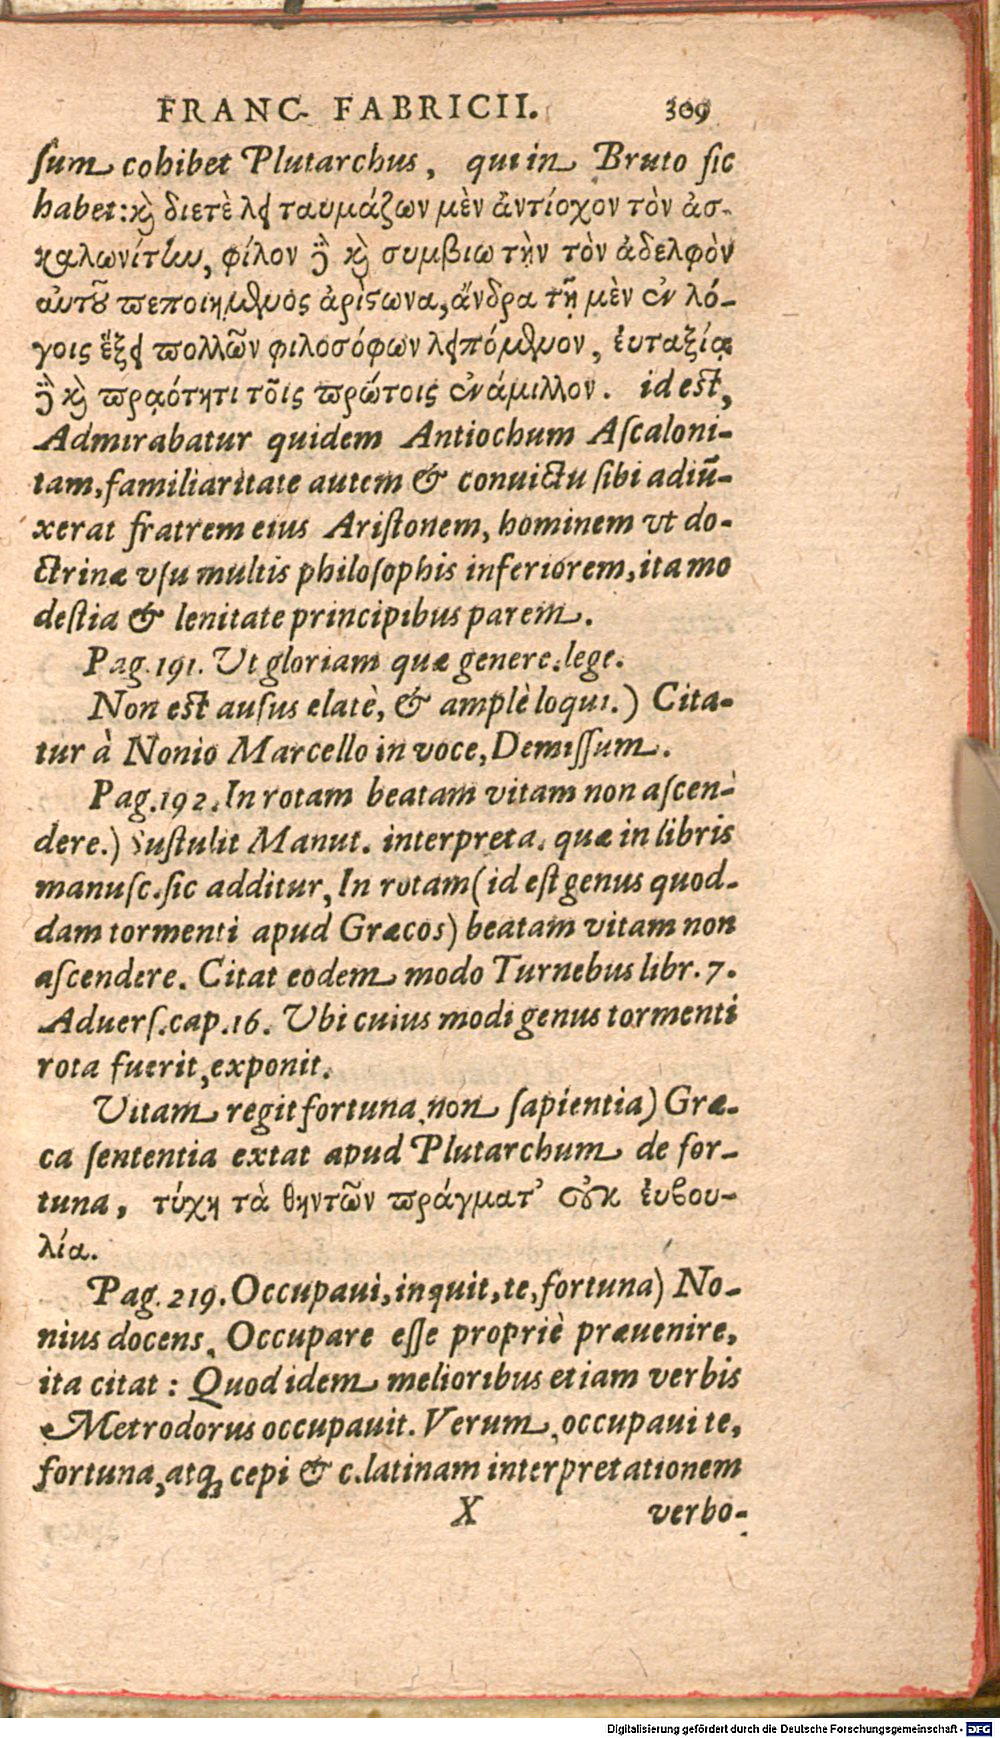 FRANC. FABRICII. 309
ſum cohibet Plutarchus, qui in Bruto ſic
habet: καὶ διετέλει ταυμάζων μὲν ἀντίοχον τὸν ἀσ-
καλωνίτην, φίλον δὲ καὶ συμβιωτὴν τὸν ἀδελφὸν
αὐτοῦ πεποιημένος ἀρίστωνα, ἄνδρα τῇ μὲν ἐν λό-
γοις ἕξει πολλῶν φιλοσόφων λειπόμενον, ἐυταξίᾳ
δὲ καὶ πραότητι τοῖς πρώτοις ἐνάμιλλον. id est,
Admirabatur quidem Antiochum Aſcaloni-
tam, familiaritate autem & conuictu ſibi adiū-
xerat fratrem eius Ariſtonem, hominem vt do-
ctrinæ vſu multis philoſophis inferiorem, ita mo
deſtia & lenitate principibus parem.
Pag. 191. Ut gloriam quæ genere. lege.
Non est auſus elatè, & amplè loqui.) Cita-
tur à Nonio Marcello in voce, Demiſſum.
Pag. 192. In rotam beatam vitam non aſcen-
dere.) Suſtulit Manut. interpreta. quæ in libris
manuſc. ſic additur, In rotam (id eſt genus quod-
dam tormenti apud Græcos) beatam vitam non
aſcendere. Citat eodem modo Turnebus libr. 7.
Aduerſ. cap. 16. Ubi cuius modi genus tormenti
rota fuerit, exponit.
Vitam regit fortuna, non ſapientia) Græ-
ca ſententia extat apud Plutarchum de for-
tuna, τύχη τὰ θηντῶν πράγματ' οὐκ ἐυβου-
λία.
Pag. 219. Occupaui, inquit, te, fortuna) No-
nius docens, Occupare eſſe propriè præuenire,
ita citat: Quod idem melioribus etiam verbis
Metrodorus occupauit. Verum, occupaui te,
fortuna, atq; cepi & c. latinam interpretationem
X verbo-
Digitalisierung gefördert durch die Deutsche Forschungsgemeinschaft - DFG